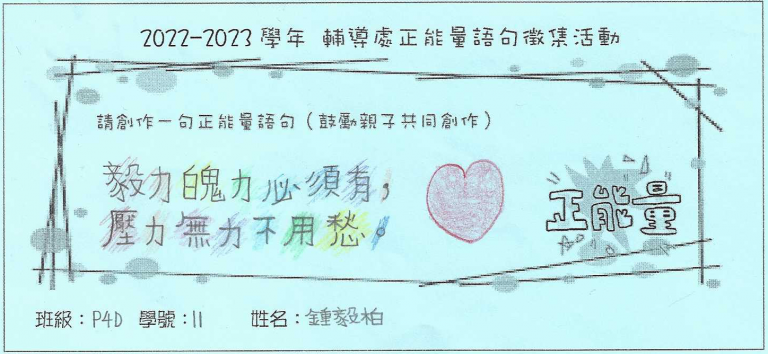 2022-2023學年 輔導處正能量語句徵集活動
請創作一句正能量語句（鼓勵親子共同創作）
毅力魄力必須有，
壓力無力不用愁。
正能量
班級：P4D 學號：11 姓名：鍾毅柏